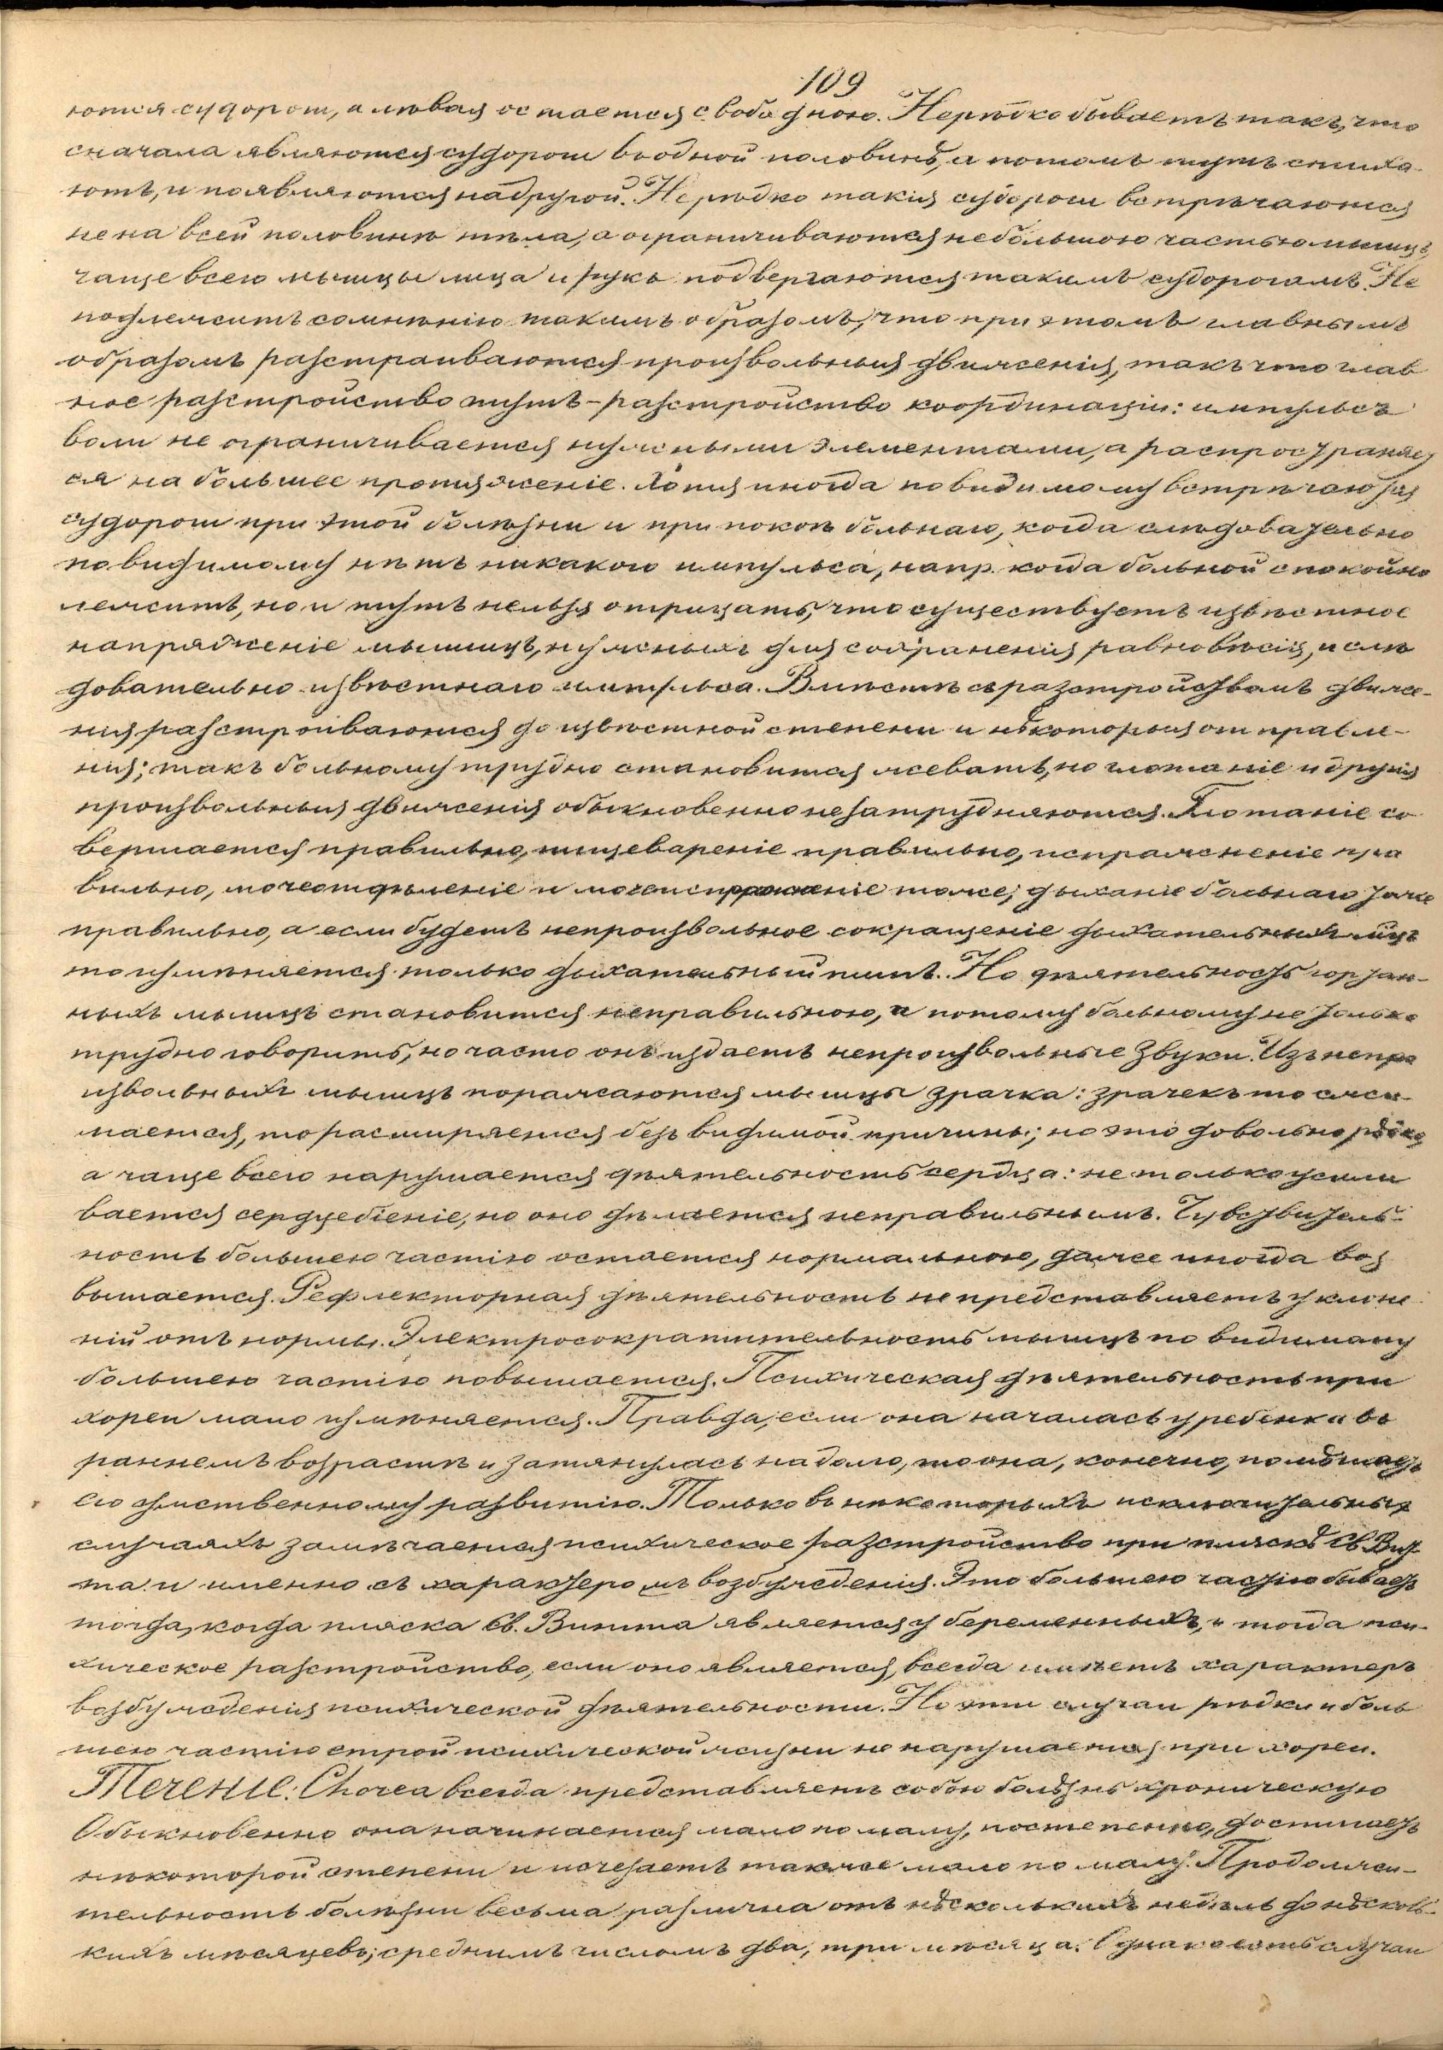 109
ются судороги, а лѣвая остается свободною. Нерѣдко бываетъ такъ, что
сначала являются судороги въ одной половинѣ, а потомъ тутъ стиха-
ютъ, и появляются на другой. Нерѣдко такія судороги встрѣчаются
не на всей половинѣ тѣла, а ограничиваются небольшою частью мышцъ,
чаще всего мышцы лица и рукъ подвергаются такимъ судорогамъ. Не
подлежитъ сомнѣнію такимъ образомъ, что при этомъ главнымъ
образомъ разстраиваются произвольныя движенія, такъ что глав
ное разстройство тутъ – разстройство координаціи: импульсъ
воли не ограничивается нужными элементами, а распространяет
ся на большее протяженіе. Хотя иногда повидимому встрѣчаются
судороги при этой болѣзни и при покоѣ больнаго, когда слѣдовательно
повидимому нѣтъ никакого импульса, напр. когда больной спокойно
лежитъ, но и тутъ нельзя отрицать, что существуетъ извѣстное
напряженіе мышцъ, нужныхъ для сохраненія равновѣсія, и слѣ
довательно извѣстнаго импульса. Вмѣстѣ съ разстройствомъ движе-
нія разстроиваются до извѣстной степени и нѣкоторыя отправле-
нія; такъ больному трудно становится жевать, но глотаніе и другія
произвольныя движенія обыкновенно не затрудняются. Глотаніе со
вершается правильно, пищевареніе правильно, испражненіе пра
вильно, мочеотдѣленіе и мочеиспусканіе тоже; дыханіе больнаго тоже
правильно, а если будетъ непроизвольное сокращеніе дыхательныхъ мцъ
то измѣняется только дыхательный типъ. Но дѣятельность гортан-
ныхъ мышцъ становится неправильною, и потому больному не только
трудно говорить, но часто онъ издаетъ непроизвольные звуки. Изъ непро
извольныхъ мышцъ поражаются мышцы зрачка: зрачекъ то сжи-
мается, то расширяется безъ видимой причины; но это довольно рѣдко,
а чаще всего нарушается дѣятельность сердца: не только усили
вается сердцебіеніе, но оно дѣлается неправильнымъ. Чувствитель-
ность большею частію остается нормальною, даже иногда воз
вышается. Рефлекторная дѣятельность не представляетъ уклоне
ній отъ нормы. Электросократительность мышцъ по видимому
большею частію повышается. Психическая дѣятельность при
хореи мало измѣняется. Правда, если она началась у ребенка въ
раннемъ возрастѣ и затянулась надолго, то она, конечно, помѣшаетъ
его умственному развитію. Только въ нѣкоторыхъ исключительныхъ
случаяхъ замѣчается психическое разстройство при пляскѣ Св. Вит-
та и именно съ характеромъ возбужденія. Это большею частію бываетъ
тогда, когда пляска Св. Витта является у беременныхъ, и тогда пси-
хическое разстройство, если оно является, всегда имѣетъ характеръ
возбужденія психической дѣятельности. Но эти случаи рѣдки и боль
шею частію строй психической жизни не нарушается при хореи.
Теченіе: Chorea всегда представляетъ собою болѣзнь хроническую
Обыкновенно она начинается мало по малу, постепенно, достигаетъ
нѣкоторой степени и исчезаетъ также мало по малу. Продолжи-
тельность болѣзни весьма различна отъ нѣсколькихъ недѣль до нѣсколь-
кихъ мѣсяцевъ; среднимъ числомъ два, три мѣсяца. Однако есть случаи